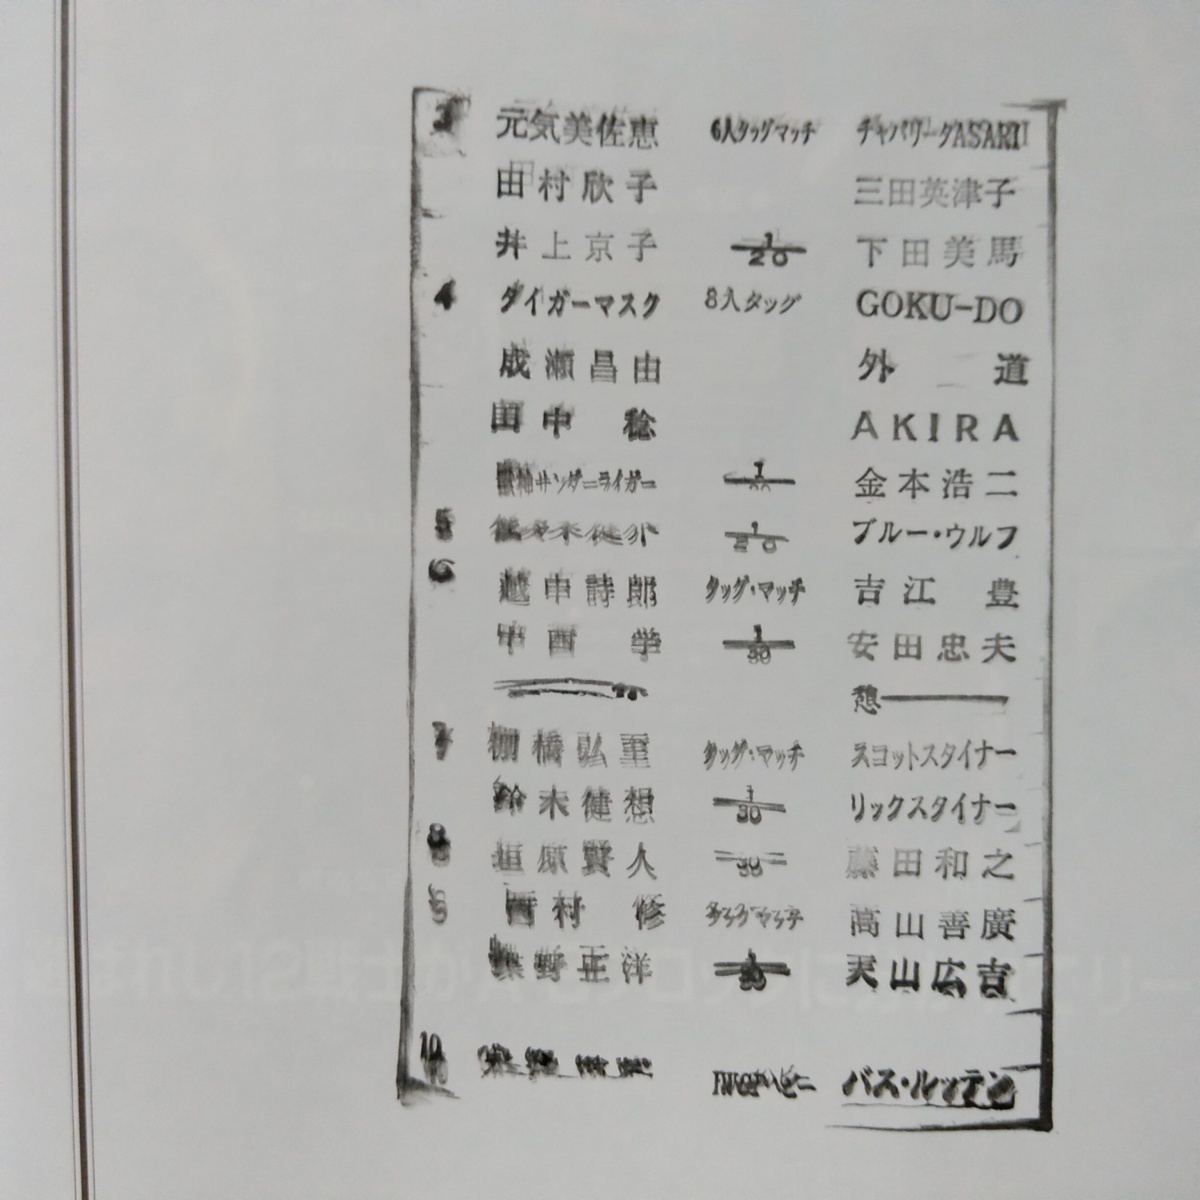 3 元気美佐恵 6人タッグマッチ チャパリータASARI
田村欣子 三田英津子
井上京子 1/20 下田美馬
4 タイガーマスク 8人タッグ GOKU-DO
成瀬昌由 外道
田中稔 AKIRA
獣神サンダーライガー 1/30 金本浩二
5 佐々木健介 1/20 ブルー・ウルフ
6 越中詩郎 タッグ・マッチ 吉江豊
中西学 1/30 安田忠夫
憩
7 棚橋弘至 タッグ・マッチ スコットスタイナー
鈴木健想 1/30 リックスタイナー
8 垣原賢人 30 藤田和之
9 西村修 タッグマッチ 高山善廣
蝶野正洋 1/30 天山広吉
10 バス・ルッテン